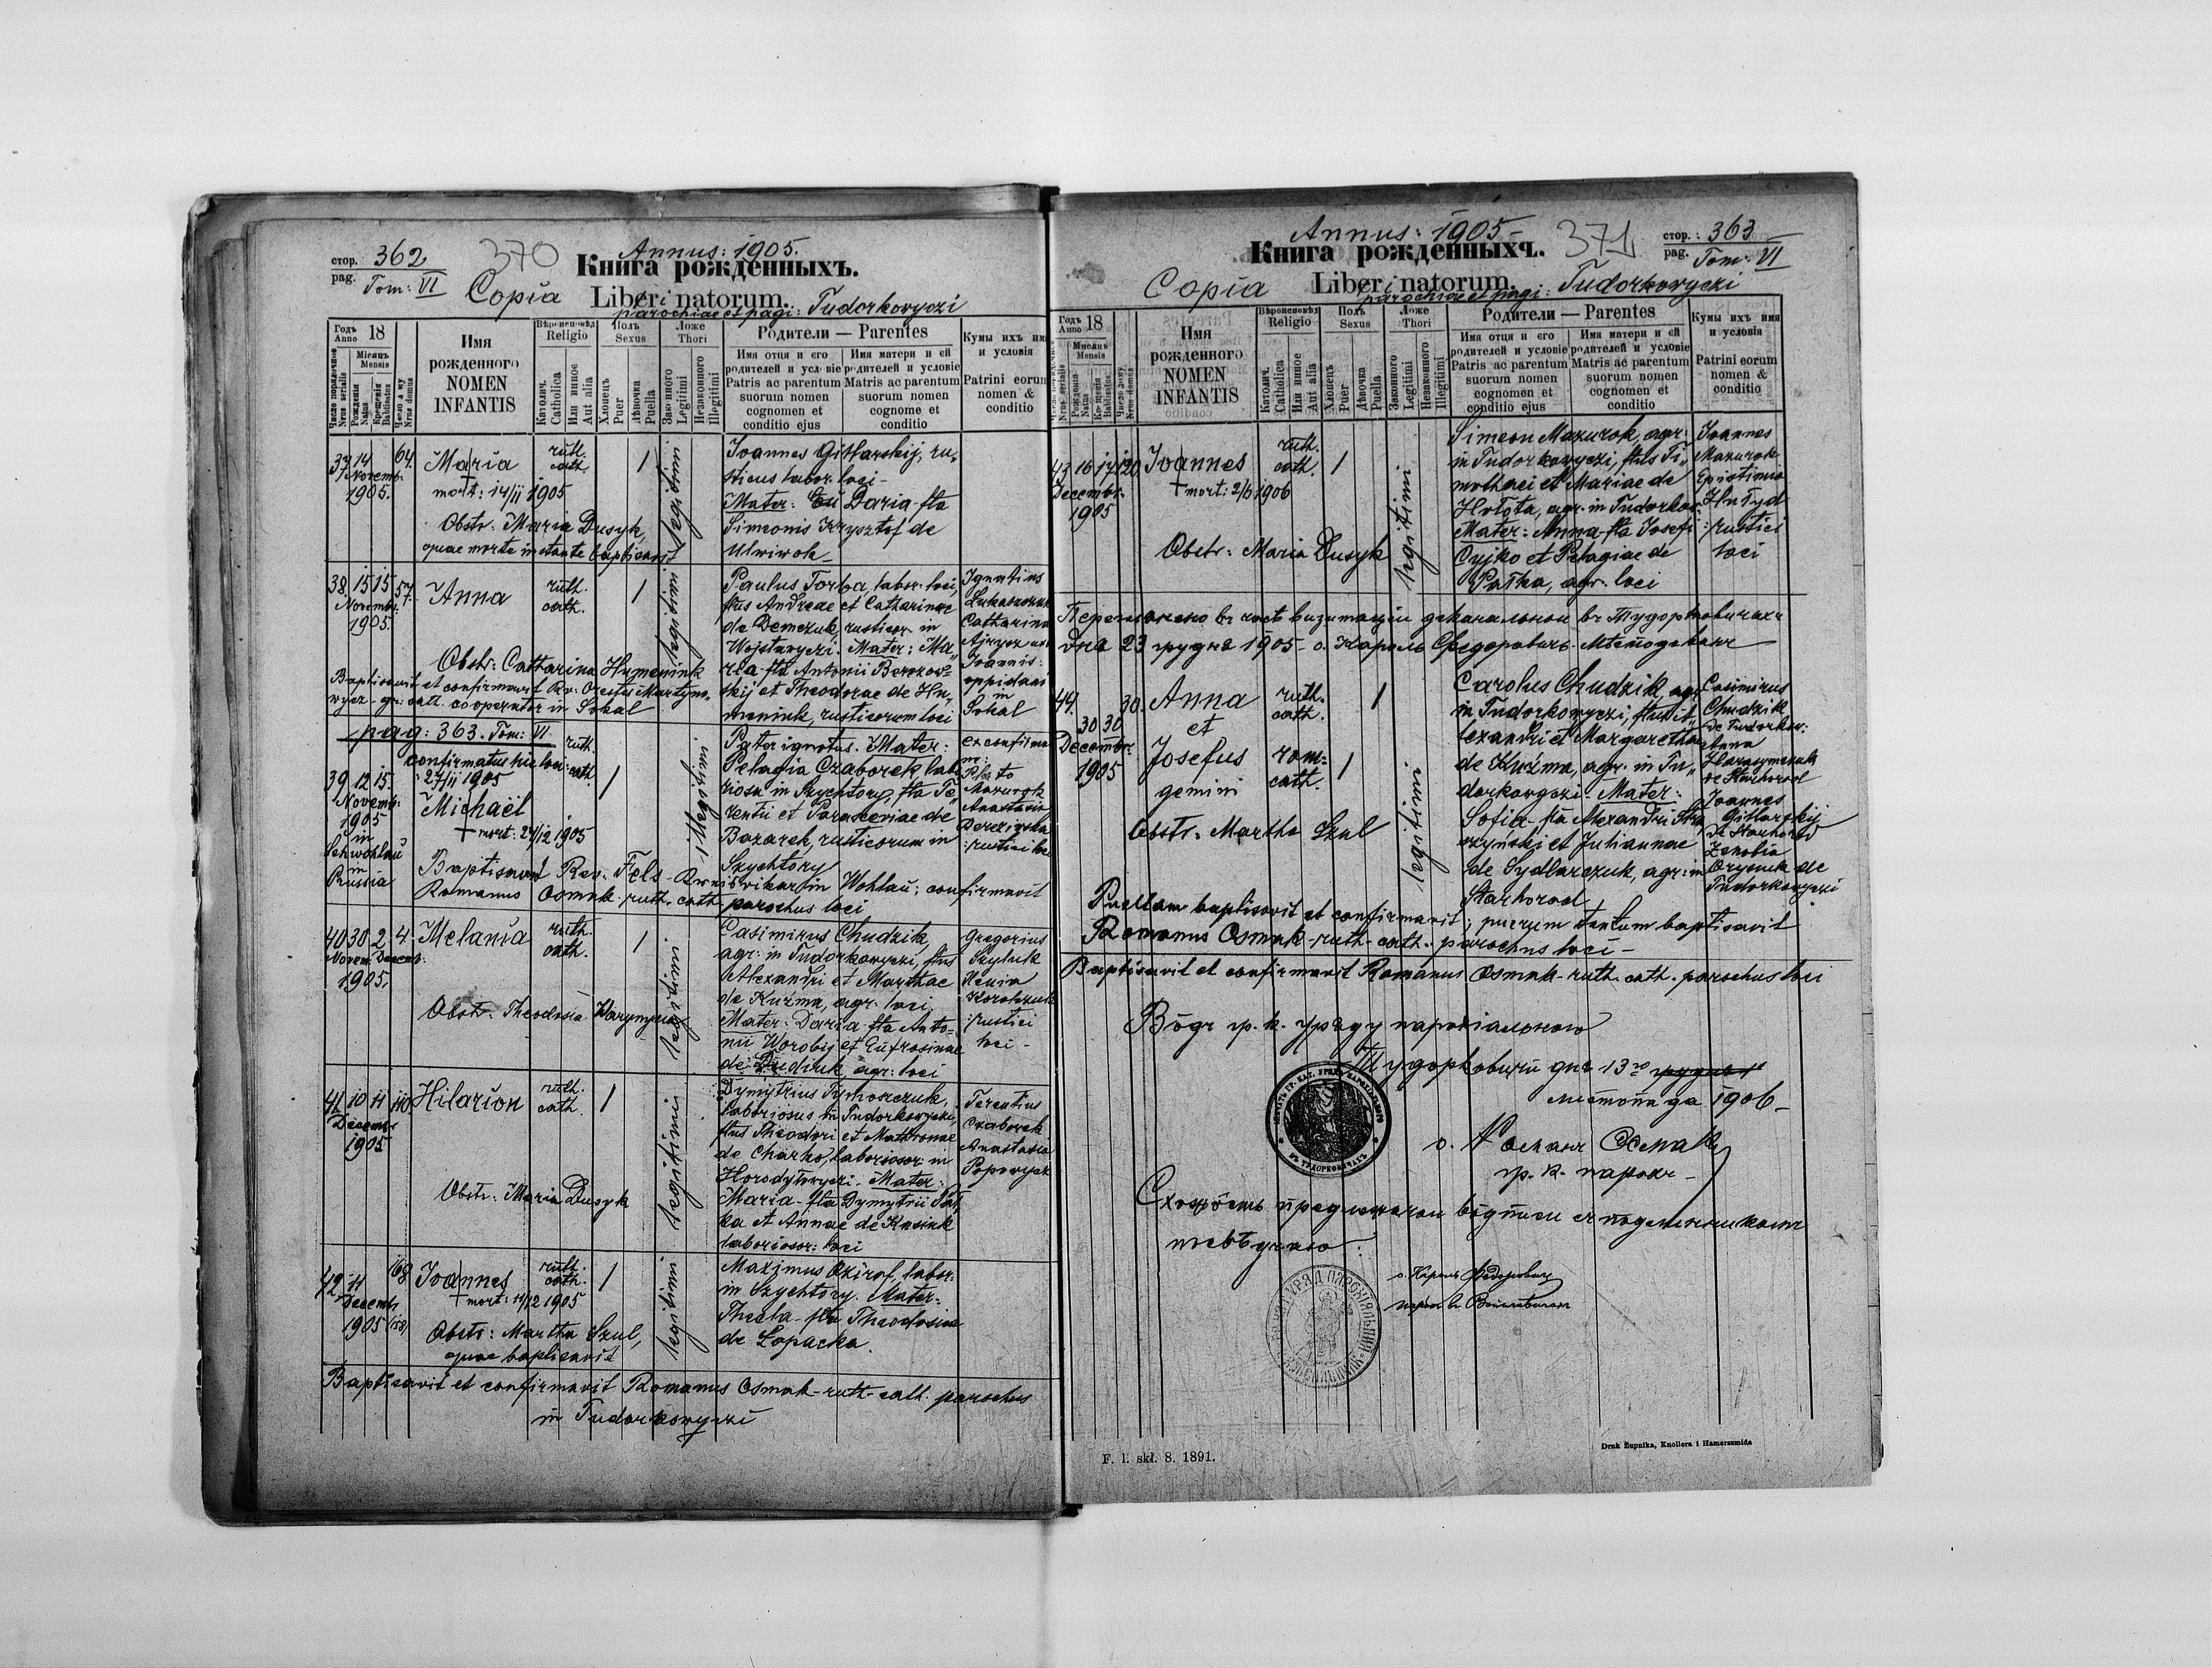 стор. 362
pag. Tom: VI
370
Annus: 1905.
Книга рожденныхъ.
Copia Liber natorum.
parochiae et pagi: Tudorkowyczi
Годъ Anno 18
Число порядочное Nrus serialis
Мѣсяцъ Mensis
Рожденія Natus
Крещенія Babtisatus
Число дому Nrus domus
Имя рожденного
NOMEN INFANTIS
Вѣроисповѣд Religio
Католич. Catholica
Или инное Aut alia
Полъ Sexus
Хлопецъ Puer
Дѣвочка Puella
Ложе Thori
Законного Legitimi
Незаконного Illegitimi
Родители — Parentes
Имя отця и его родителей и условіе
Patris ac parentum suorum nomen cognomen et conditio ejus
Имя матери и ей родителей и условіе
Matris ac parentum suorum nomen cognome et conditio
Кумы ихъ имя и условія
Patrini eorum nomen & conditio
37 14 Novemb. 1905.
64
Maria
mort: 14/11 1905
Obstr: Maria Dusyk,
quae morte instante baptisavit
ruth. cath.
1
legitimi
Joannes Gitlarskij, ru„
sticus labor. loci -
Mater: Daria fta
Simeonis Krysztof de
Ulwiwok
38 15 15 57.
Novemb. 1905.
Anna
ruth. cath.
1
legitimi
Obstr: Catharina Humeniuk
Baptisavit et confirmavit Rv: Orestes Martyno„
wycz - gr: cath. cooperator in Sokal
Paulus Torba, labor. loci,
ftus Andreae et Catharinae
de Demczuk, rusticor. in
Wojslawyczi. Mater: Ma„
ria fta Antonii Berezow-
skij et Theodorae de Hu„
meniuk, rusticorum loci
Ignatius
Catharina
Joannis:
oppidani
in
Sokal
pag: 363. Tom: VI
confirmatus hic loci:
27/11 1905
39 12 15.
Novemb: 1905
in
Schwohlau
in
Russia
Michaël
+ mort: 24/12 1905
ruth. cath.
1
illegitimi
Pater ignotus. Mater:
Pelagia Czaborek labo„
riosa in Szychtory, fta Te„
rentii et Parasceviae de
Bazarek, rusticorum in
Szychtory
Mazurok
Anastasia
Derezinska
: rustici loci
Baptisavit Rev. Fels
vikar in Wohlau; confirmavit
Romanus Osmak - ruth. cath. parochus loci
40 30 2 4.
Novem. Decemb:
1905.
Melania
ruth. cath.
1
legitimi
Obstr: Theodosia
Casimirus Chudzik,
agr: in Tudorkowyczi, ftus
Alexandri et Marthae
de Kuźma, agr. loci
Mater: Daria fta Anto-
nii Worobij et Eufrosinae
de Dudiuk, agr: loci
Gregorius
Szyluk
Xenia
: rustici
loci -
41 10 11 110
Decemb: 1905
Hilarion
ruth. cath.
1
legitimi
Obstr: Maria Dusyk
Dymytrius Tymoszczuk,
laboriosus in Tudorkowyczi,
ftus Theodori et Matronae
de Charko, laboriosor. in
Horodyłowyczi. Mater:
Maria - fta Dymytrii Pał„
ka et Annae de Kusiuk
laboriosor: loci
Terentius
Czaborek
Anastasia
Popowycz
42 11
Decemb. 1905
168
Joannes
+ mort: 11/12 1905
Obstr: Martha Szul,
quae baptisavit
ruth. cath.
1
legitimi
Maximus Oziraf, labor.
in Szychtory. Mater-
Thecla - fta Theodosia
de Łopacka.
Baptisavit et confirmavit Romanus Osmak - ruth - cath. parochus
in Tudorkowyczi
Annus: 1905 -
371
стор. : 363
pag. Tom: VI
Книга рожденныхъ.
Copia Liber natorum.
parochiae et pagi: Tudorkowyczi
Годъ Anno 18
Мѣсяцъ Mensis
Имя рожденного
NOMEN INFANTIS
Вѣроисповѣд Religio
Католич. Catholica
Или инное Aut alia
Полъ Sexus
Хлопецъ Puer
Дѣвочка Puella
Ложе Thori
Законного Legitimi
Незаконного Illegitimi
Родители — Parentes
Имя отця и его родителей и условіе
Patris ac parentum suorum nomen cognomen et conditio ejus
Имя матери и ей родителей и условіе
Matris ac parentum suorum nomen cognomen et conditio
Кумы ихъ имя и условія
Patrini eorum nomen & conditio
43 16 17 120
Decembr. 1905
Joannes
+ mort: 2/6 1906
Obstr: Maria Dusyk
ruth. cath.
1
legitimi
Simeon Mazurok, agr:
in Tudorkowyczi, ftus Ti„
mothaei et Mariae de
Hołota, agr. in Tudorkow:
Mater: Anna fta Josefi
Cyjko et Pelagiae de
Pałka, agr. loci
Joannes
Mazurok
Epistimia
: rustici
loci
дня 23 грудня 1905 - о. Кароль Федоровичъ
44.
30 30
Decembr. 1905
30.
Anna
et
Josefus
gemini
ruth. cath.
rom: cath.
1
1
legitimi
Obstr. Martha Szul
Carolus Chudzik, agr
in Tudorkowyczi, ftus A„
lexandri et Margarethae
de Kuźma, agr. in Tu„
dorkowyczi - Mater:
Sofia - fta Alexandri Stra„
szyński et Juliannae
de Sydlarczuk, agr: in
Starhorod
Casimirus
Chudzik
de Tudorkow:
Anna
Harasymczuk
de Starhorod
Joannes
Gitlarskij
de Starhorod
Zenobia
Orysiuk de
Tudorkowyczi
Puellam baptisavit et confirmavit; puerum tantum baptisavit
Romanus Osmak - ruth - cath. parochus loci -
Baptisavit et confirmavit Romanus Osmak - ruth. cath. parochus loci
Вôдъ гр. к. уряду парохіального
Тудорковичи дня 13го грудня
листопада 1906 -
о. Романъ Осмакъ
гр. к. парохъ -
о. Кароль Федоровичъ
F. l. skł. 8. 1891.
Druk Żupnika, Knollera i Hamerszmida